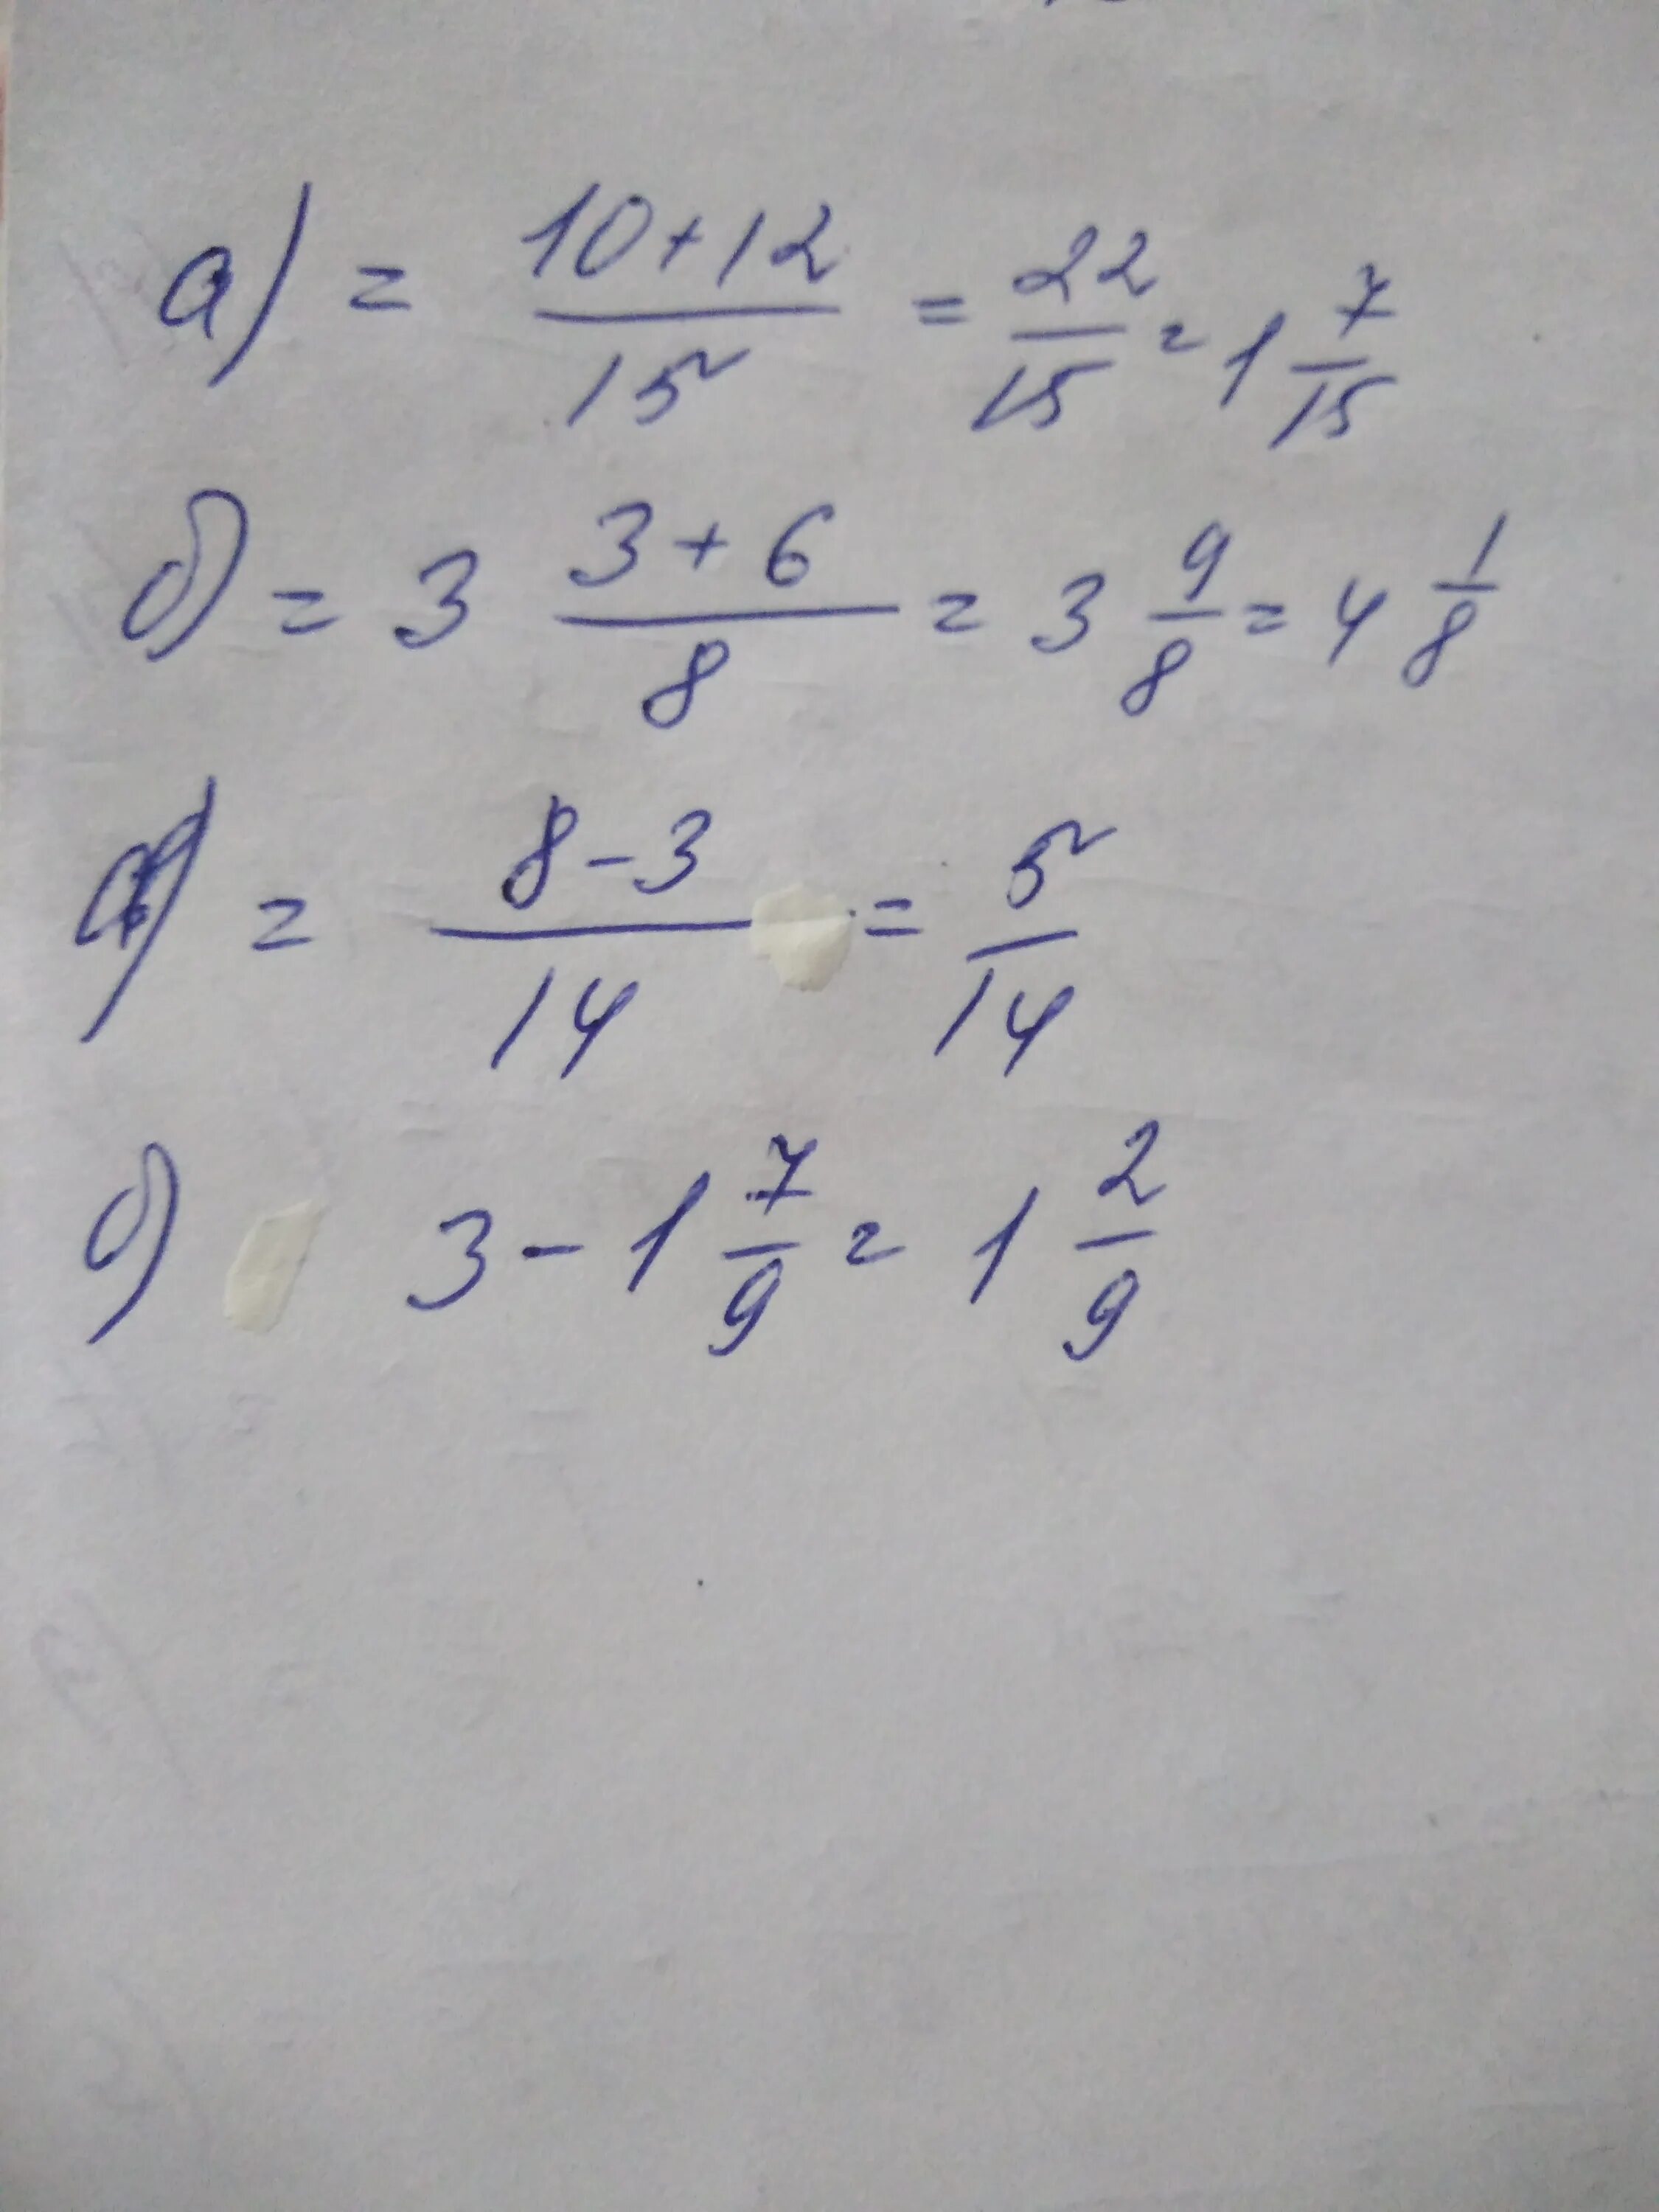 а) = \frac{10+12}{15} = \frac{22}{15} = 1 \frac{7}{15}
б) = 3 \frac{3+6}{8} = 3 \frac{9}{8} = 4 \frac{1}{8}
а) = \frac{8-3}{14} = \frac{5}{14}
б) 3 - 1 \frac{7}{9} = 1 \frac{2}{9}